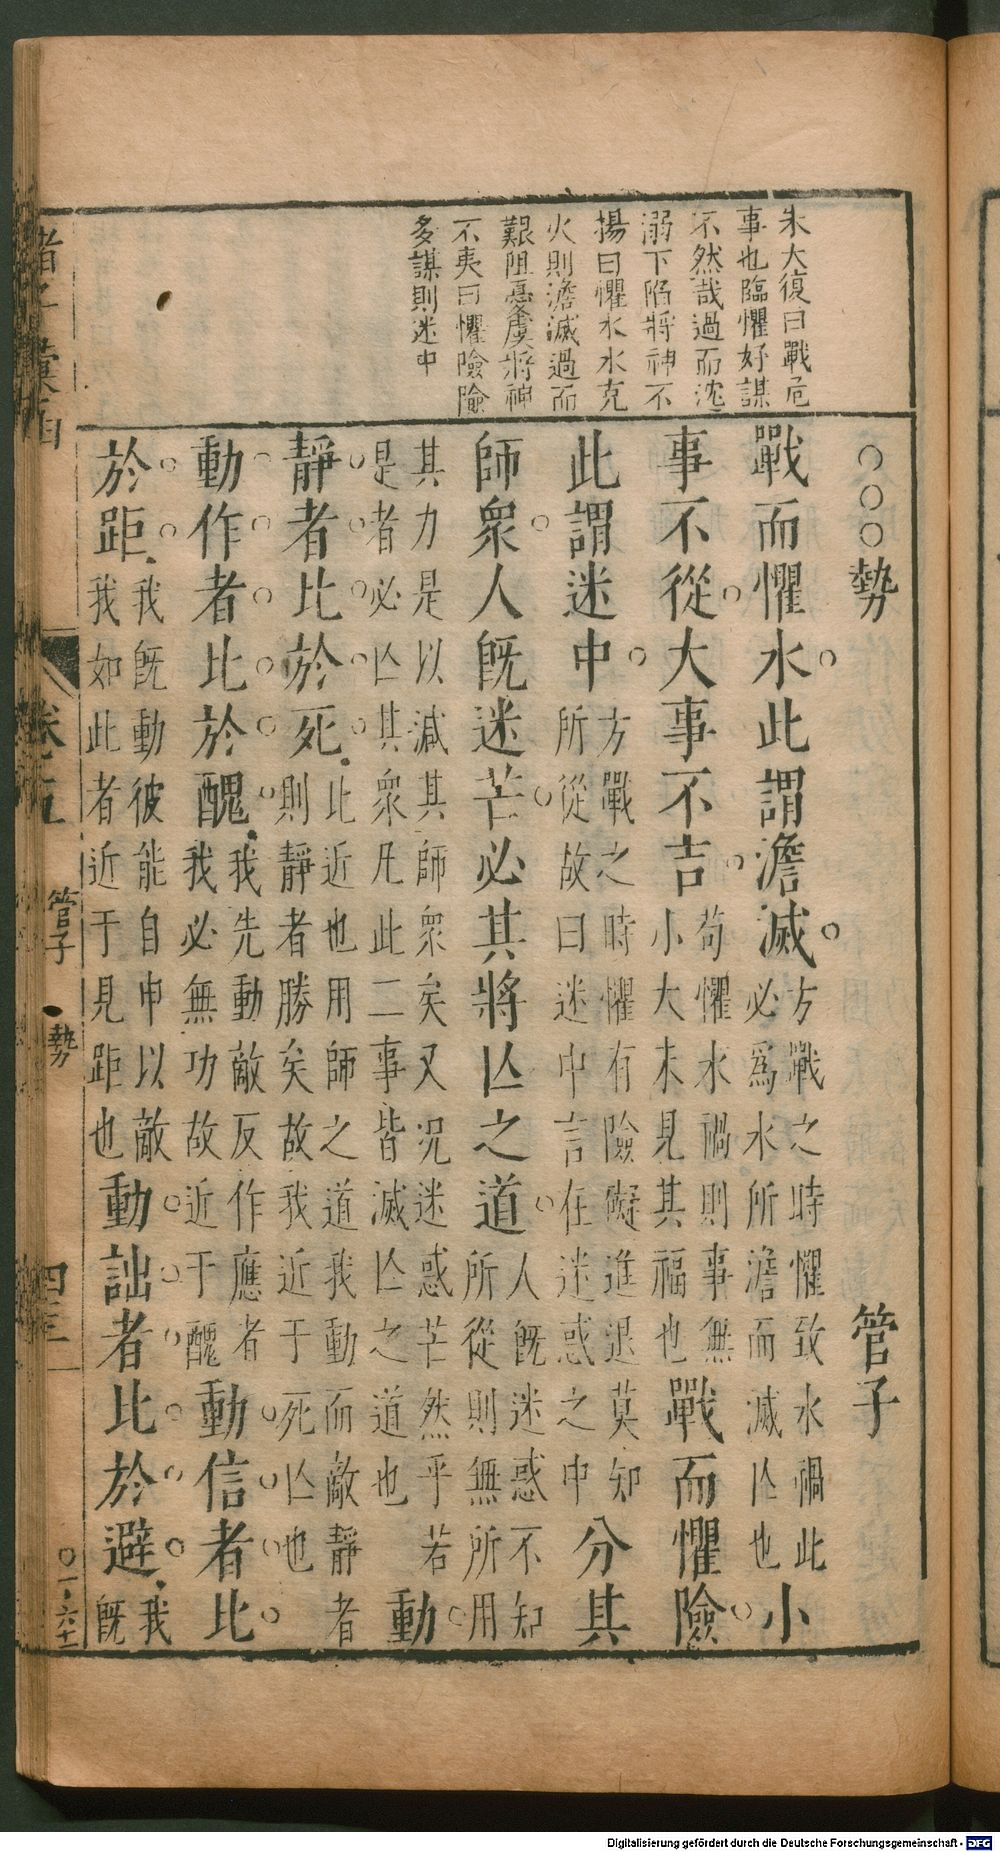 朱大復曰戰危
事也臨懼好謀
不然哉過而沈
溺下陷將神不
揚曰懼水水克
火則澹滅過而
艱阻憂虞將神
不夷曰懼險險
多謀則迷中
○○○勢 管子
戰而懼水此謂澹滅方戰之時懼致水禍此必爲水所澹而滅亾也小
事不從大事不吉苟懼水禍則事無小大未見其福也戰而懼險
此謂迷中方戰之時懼有險礙進退莫知所從故曰迷中言在迷惑之中分其
師衆人旣迷芒必其將亾之道人旣迷惑不知所從則無所用
其力是以減其師衆矣又況迷惑芒然乎若是者必亾其衆凡此二事皆滅亾之道也動
靜者比於死此近也用師之道我動而敵靜者則靜者勝矣故我近于死亾也
動作者比於醜我先動敵反作應者我必無功故近于醜動信者比
於距我旣動彼能自申以敵我如此者近于見距也動詘者比於避我旣
管子 勢 四三
Digitalisierung gefördert durch die Deutsche Forschungsgemeinschaft - DFG